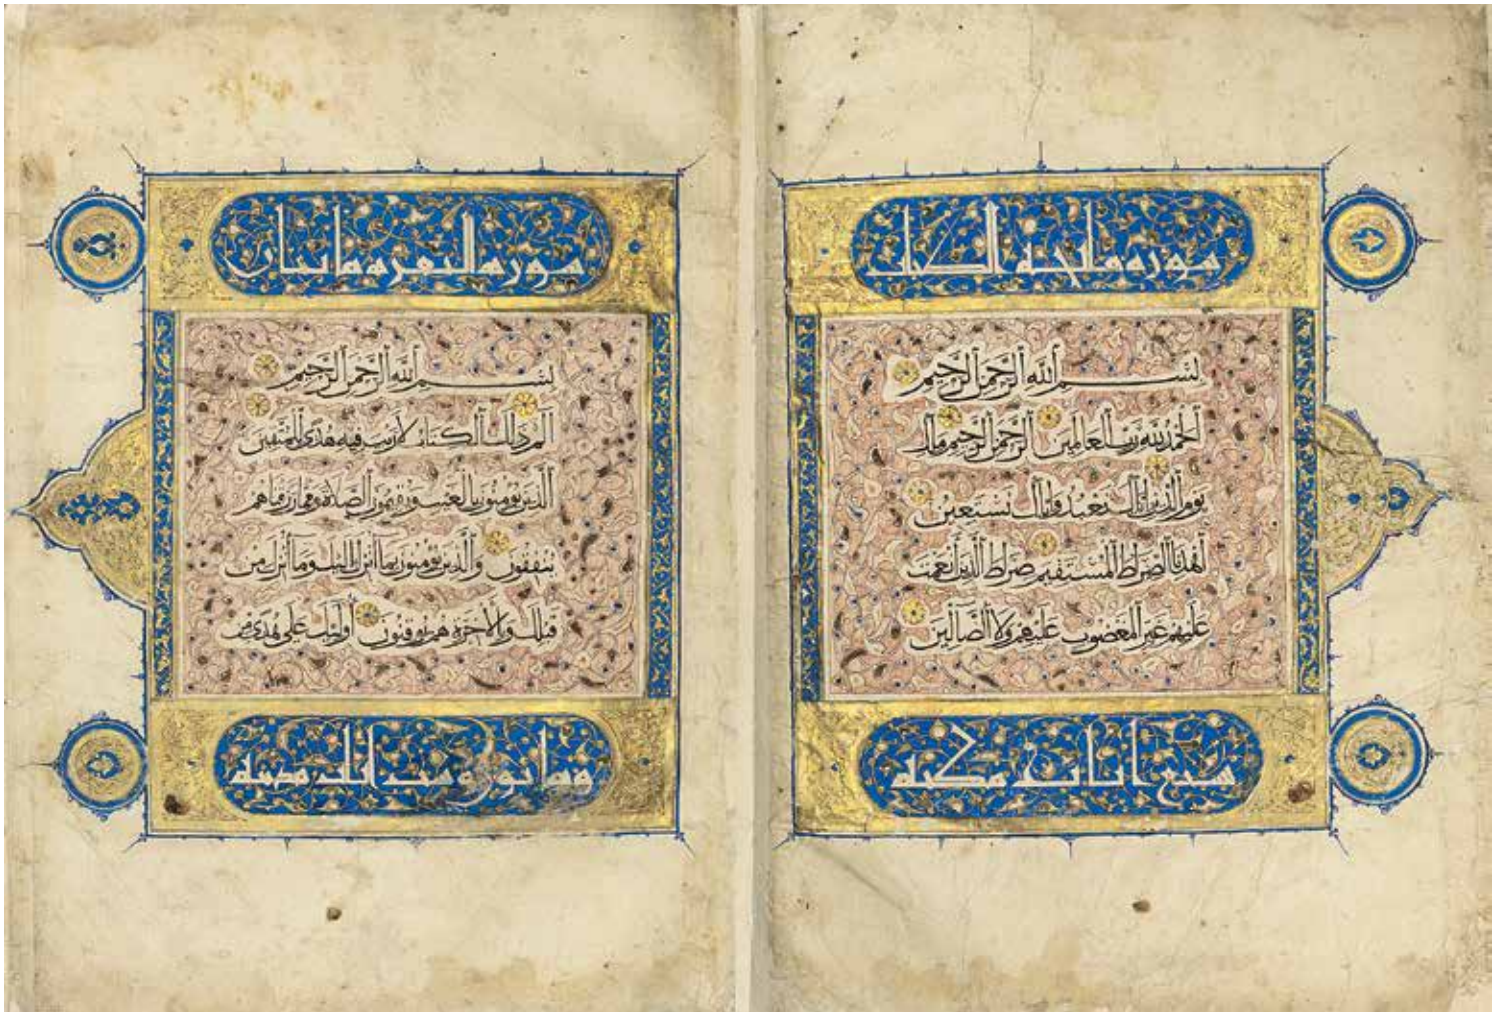 سورة فاتحة الكتاب
بسم الله الرحمن الرحيم
الحمد لله رب العالمين الرحمن الرحيم مالك
يوم الدين اياك نعبد واياك نستعين
اهدنا الصراط المستقيم صراط الذين أنعمت
عليهم غير المغضوب عليهم ولا الضالين
سبع آيات مكية
سورة البقرة مائتان
بسم الله الرحمن الرحيم
الم ذلك الكتاب لا ريب فيه هدى للمتقين
الذين يومنون بالغيب ويقيمون الصلاة ومما رزقناهم
ينفقون والذين يومنون بما أنزل اليك وما أنزل من
قبلك وبالآخرة هم يوقنون أولئك على هدى من
وثمانون وست آيات مدنية